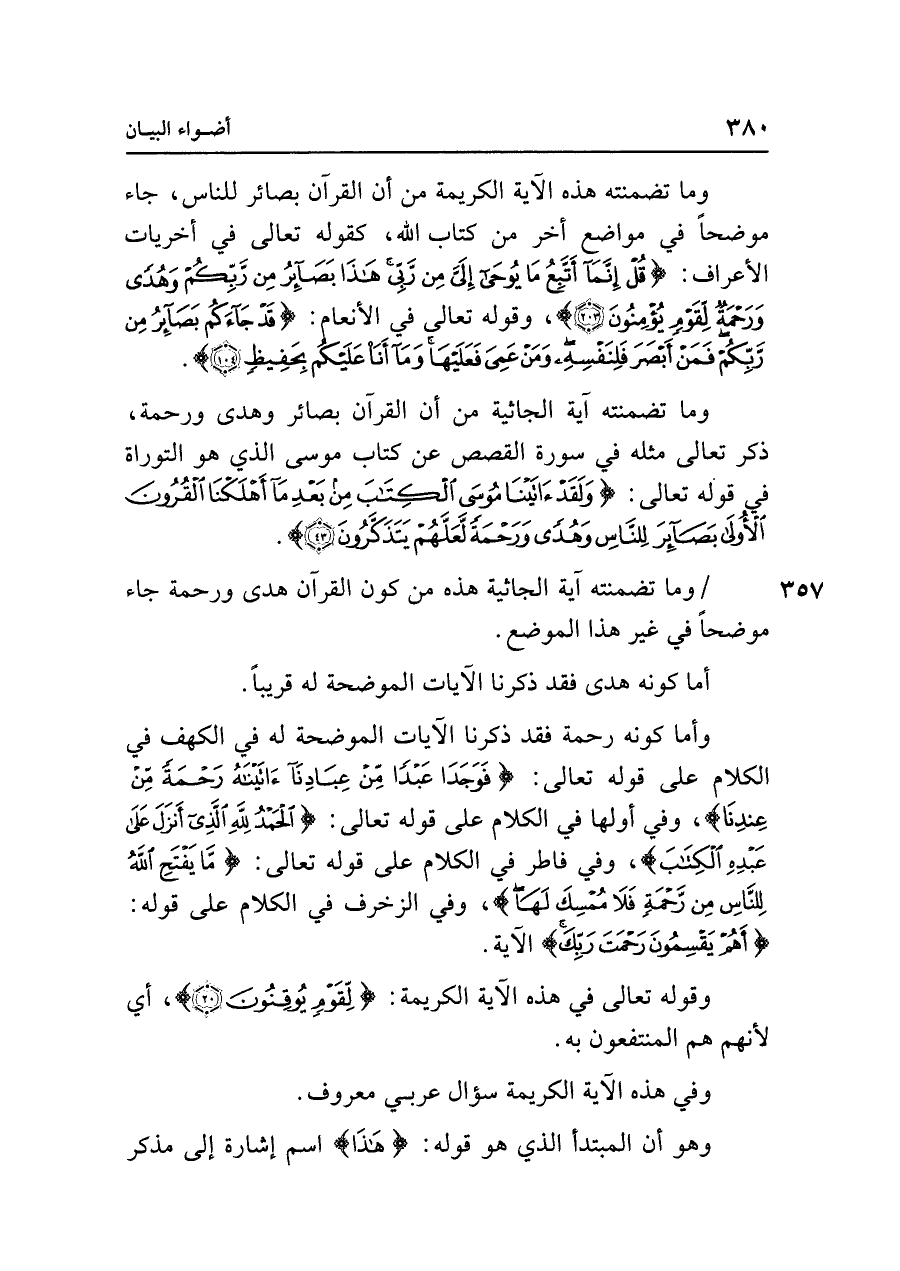 ٣٨٠ أضواء البيان
وما تضمنته هذه الآية الكريمة من أن القرآن بصائر للناس، جاء
موضحاً في مواضع أخر من كتاب الله، كقوله تعالى في أخريات
الأعراف: ﴿قُلْ إِنَّمَآ أَتَّبِعُ مَا يُوحَىٰٓ إِلَىَّ مِن رَّبِّىۚ هَٰذَا بَصَآئِرُ مِن رَّبِّكُمْ وَهُدًى
وَرَحْمَةٌ لِّقَوْمٍ يُؤْمِنُونَ ﴿٢٠٣﴾﴾، وقوله تعالى في الأنعام: ﴿قَدْ جَآءَكُم بَصَآئِرُ مِن
رَّبِّكُمْۖ فَمَنْ أَبْصَرَ فَلِنَفْسِهِۦۖ وَمَنْ عَمِىَ فَعَلَيْهَاۚ وَمَآ أَنَا۠ عَلَيْكُم بِحَفِيظٍ ﴿١٠٤﴾﴾.
وما تضمنته آية الجاثية من أن القرآن بصائر وهدى ورحمة،
ذكر تعالى مثله في سورة القصص عن كتاب موسى الذي هو التوراة
في قوله تعالى: ﴿وَلَقَدْ ءَاتَيْنَا مُوسَى ٱلْكِتَٰبَ مِنۢ بَعْدِ مَآ أَهْلَكْنَا ٱلْقُرُونَ
ٱلْأُولَىٰ بَصَآئِرَ لِلنَّاسِ وَهُدًى وَرَحْمَةً لَّعَلَّهُمْ يَتَذَكَّرُونَ ﴿٤٣﴾﴾.
٣٥٧ / وما تضمنته آية الجاثية هذه من كون القرآن هدى ورحمة جاء
موضحاً في غير هذا الموضع.
أما كونه هدى فقد ذكرنا الآيات الموضحة له قريباً.
وأما كونه رحمة فقد ذكرنا الآيات الموضحة له في الكهف في
الكلام على قوله تعالى: ﴿فَوَجَدَا عَبْدًا مِّنْ عِبَادِنَآ ءَاتَيْنَٰهُ رَحْمَةً مِّنْ
عِندِنَا﴾، وفي أولها في الكلام على قوله تعالى: ﴿ٱلْحَمْدُ لِلَّهِ ٱلَّذِىٓ أَنزَلَ عَلَىٰ
عَبْدِهِ ٱلْكِتَٰبَ﴾، وفي فاطر في الكلام على قوله تعالى: ﴿مَّا يَفْتَحِ ٱللَّهُ
لِلنَّاسِ مِن رَّحْمَةٍ فَلَا مُمْسِكَ لَهَاۖ﴾، وفي الزخرف في الكلام على قوله:
﴿أَهُمْ يَقْسِمُونَ رَحْمَتَ رَبِّكَۚ﴾ الآية.
وقوله تعالى في هذه الآية الكريمة: ﴿لِّقَوْمٍ يُوقِنُونَ ﴿٢٠﴾﴾، أي
لأنهم هم المنتفعون به.
وفي هذه الآية الكريمة سؤال عربي معروف.
وهو أن المبتدأ الذي هو قوله: ﴿هَٰذَا﴾ اسم إشارة إلى مذكر